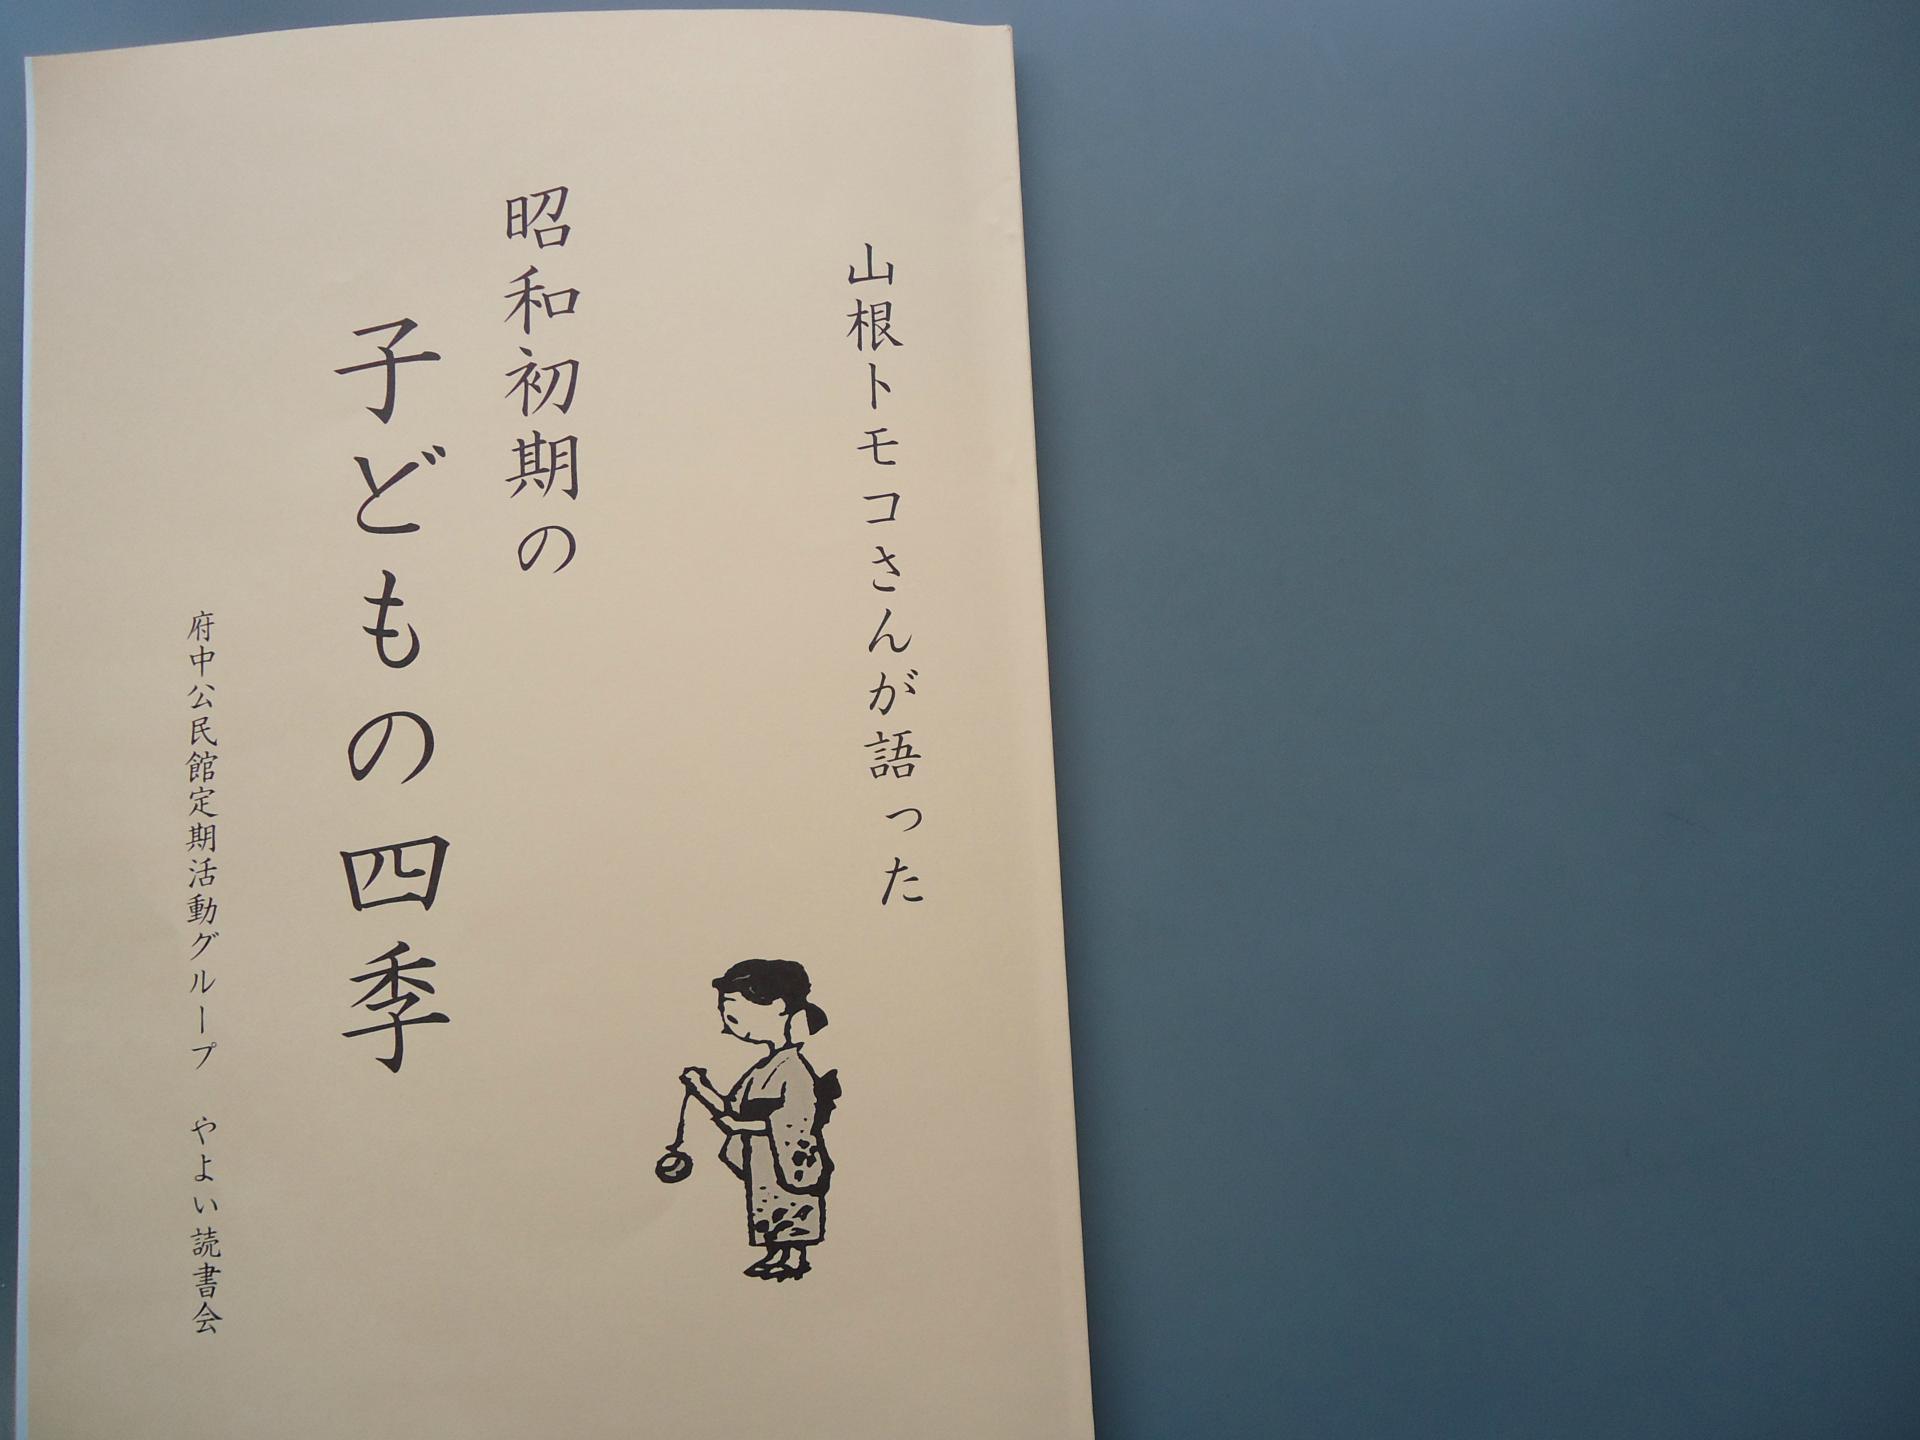 山根トモコさんが語った
昭和初期の
子どもの四季
府中公民館定期活動グループ　やよい読書会